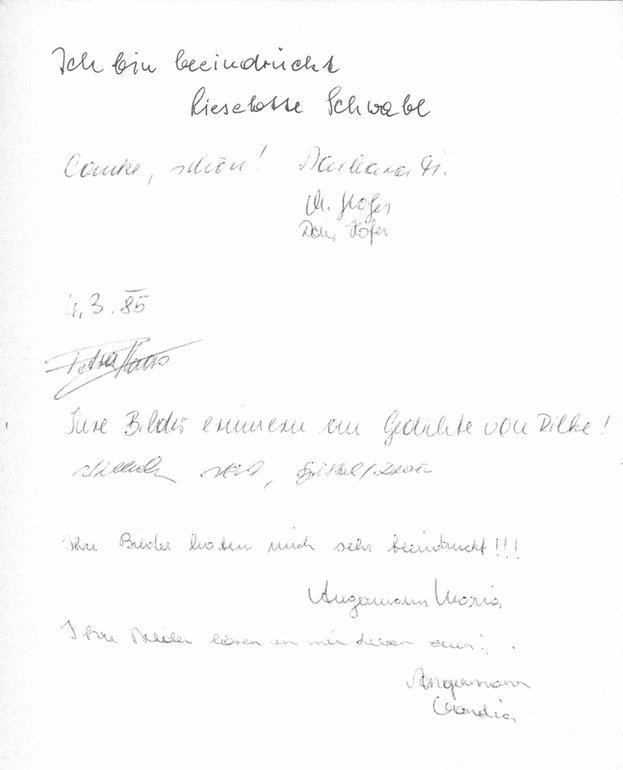 Ich bin beeindrückt
Lieselotte Schwabl
Danke, schön! Barbara H.
M. Hofer
Doris Höfer
4.3.85
Ihre Bilder erinnern an Gedichte von Rilke!
Ihre Bilder haben mich sehr beeindruckt!!!
Angermann Maria
Ihre Bilder lösen in mir aus!
Angermann
Claudia